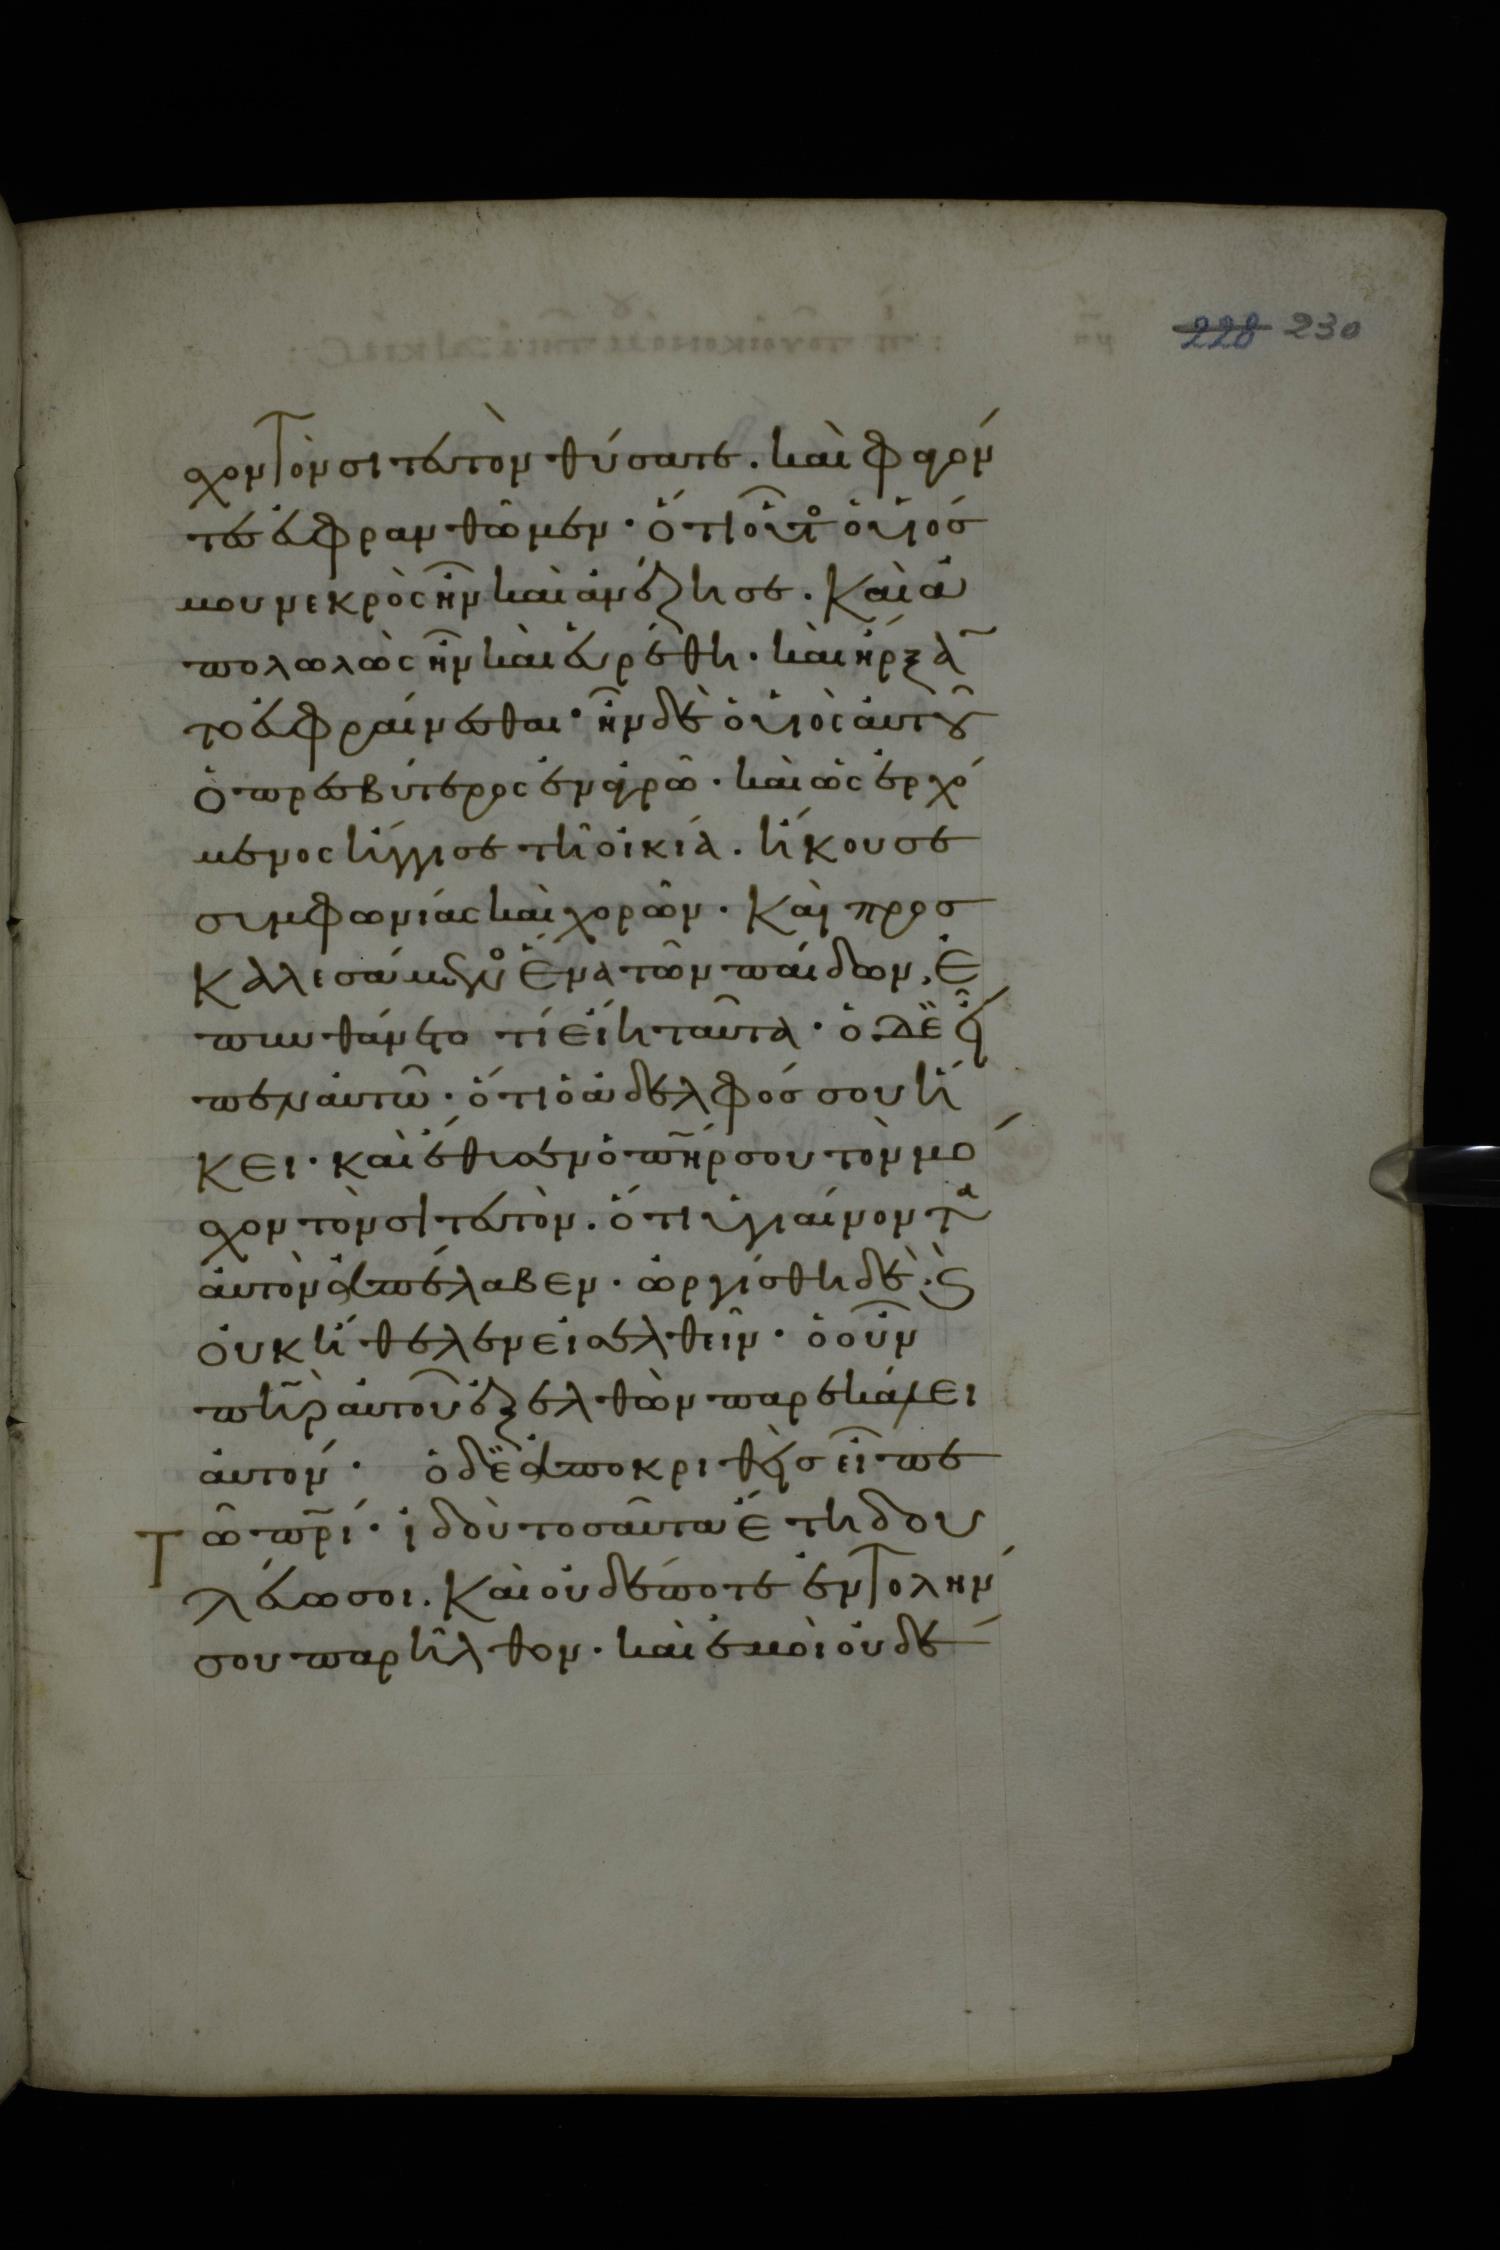 228 230
χον τὸν σιτευτὸν θύσατε. καὶ φαγόν
τες εὐφρανθῶμεν· ὅτι οὗτος ὁ υἱός
μου νεκρὸς ἦν καὶ ἀνέζησε. καὶ ἀ
πολωλὼς ἦν καὶ εὑρέθη· καὶ ἤρξαν
το εὐφραίνεσθαι· ἦν δὲ ὁ υἱὸς αὐτοῦ
ὁ πρεσβύτερος ἐν ἀγρῶ· καὶ ὡς ἐρχό
μενος ἤγγισε τῆ οἰκία. ἤκουσε
συμφωνίας καὶ χορῶν. καὶ προσ
καλεσάμενος ἕνα τῶν παίδων, ἐ
πυνθάνετο τί εἴη ταῦτα· ὁ δὲ εἶ
πεν αὐτῶ· ὅτι ὁ ἀδελφός σου ἥ
κει· καὶ ἔθυσεν ὁ πῆρ σου τὸν μό
χον τὸν σιτευτὸν. ὅτι ὑγιαίνοντα
αὐτὸν ἀπέλαβεν· ὠργίσθη δὲ. καὶ
οὐκ ἤθελεν εἰσελθεῖν· ὁ οὖν
πὴρ αὐτοῦ ἐξελθὼν παρεκάλει
αὐτόν· ὁ δὲ ἀποκριθεὶς εἶπε
τῶ πρί· ἰδοὺ τοσαῦτα ἔτη δου
λεύω σοι. καὶ οὐδέποτε ἐντολήν
σου παρῆλθον· καὶ ἐμοὶ οὐδέ